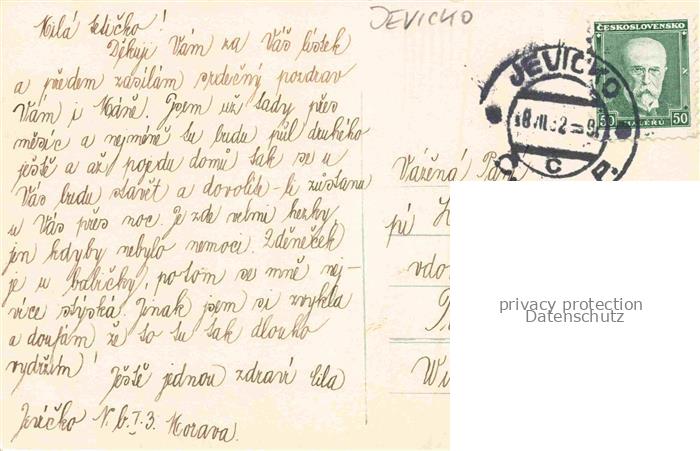 Milá tetičko!
Děkuji Vám za Váš lístek
a předem zasílám srdečný pozdrav
Vám i Máně. Jsem už tady přes
měsíc a nejméně tu budu půl druhého
ještě a až pojedu domů tak se u
Vás budu stavět a dovolíte-li zůstanu
u Vás přes noc. Je zde velmi hezky,
jen kdyby nebylo nemoci. Zdeněček
je u babičky, po tom se mně nej-
více stýská. Jinak jsem si zvykla
a doufám že to tu tak dlouho
vydržím!
Ještě jednou zdraví Lila
Jevíčko N. b. I. 3. Morava.
JEVICKO
ČESKOSLOVENSKO
50 HALÉŘŮ 50
JEVÍČKO
C
Vážená Paní
pí
vdo
Wi
privacy protection
Datenschutz